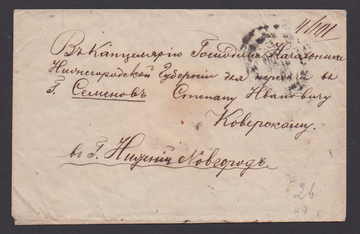 Въ Канцелярію Господина Начальника
Нижегородской Губерніи для передачи въ
Г. Семеновъ Степану Ивановичу
Коверскому.
въ Г. Нижній Новгородъ
26